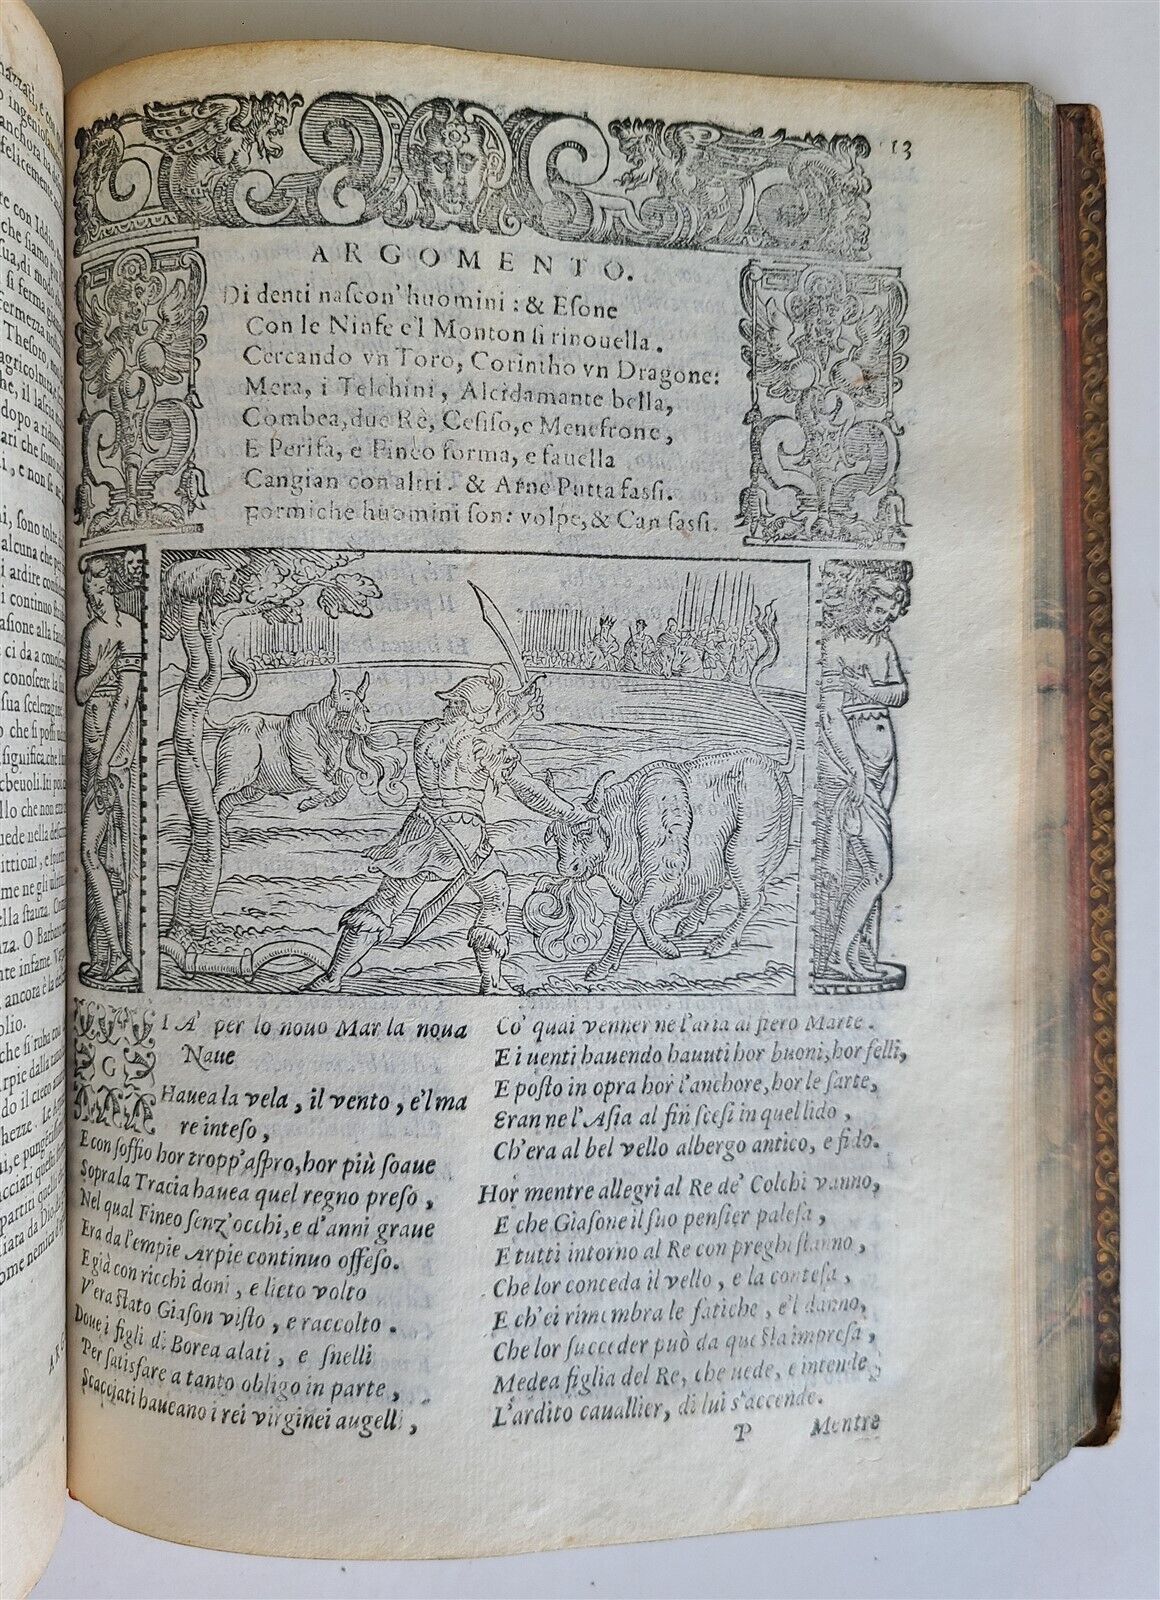 13
ARGOMENTO.
Di denti naſcon' huomini: & Eſone
Con le Ninfe e'l Monton ſi rinouella.
Cercando vn Toro, Corintho vn Dragone:
Mera, i Telchini, Alcidamante bella,
Combea, due Rè, Cefiſo, e Menefrone,
E Perifa, e Fineo forma, e fauella
Cangian con altri. & Arne Putta faſſi.
Formiche huomini ſon: volpe, & Can ſaſſi.
GIA' per lo nouo Mar la noua
Naue
Hauea la vela, il vento, e'l ma
re inteſo,
E con ſoffio hor tropp'aſpro, hor più ſoaue
Sopra la Tracia hauea quel regno preſo,
Nel qual Fineo ſenz'occhi, e d'anni graue
Era da l'empie Arpie continuo offeſo.
E già con ricchi doni, e lieto volto
V'era ſtato Giaſon viſto, e raccolto.
Doue i figli di Borea alati, e ſnelli
Per ſatisfare a tanto obligo in parte,
Scacciati haueano i rei virginei augelli,
Co' quai venner ne l'aria al fiero Marte.
E i uenti hauendo hauuti hor buoni, hor felli,
E poſto in opra hor l'anchore, hor le ſarte,
Eran ne l'Aſia al fin ſceſi in quel lido,
Ch'era al bel vello albergo antico, e fido.
Hor mentre allegri al Re de' Colchi vanno,
E che Giaſone il ſuo penſier paleſa,
E tutti intorno al Re con preghi ſtanno,
Che lor conceda il vello, e la conteſa,
E ch'ei rimembra le fatiche, e'l danno,
Che lor ſucceder può da queſta impreſa,
Medea figlia del Re, che uede, e intende
L'ardito cauallier, di lui s'accende.
P Mentre